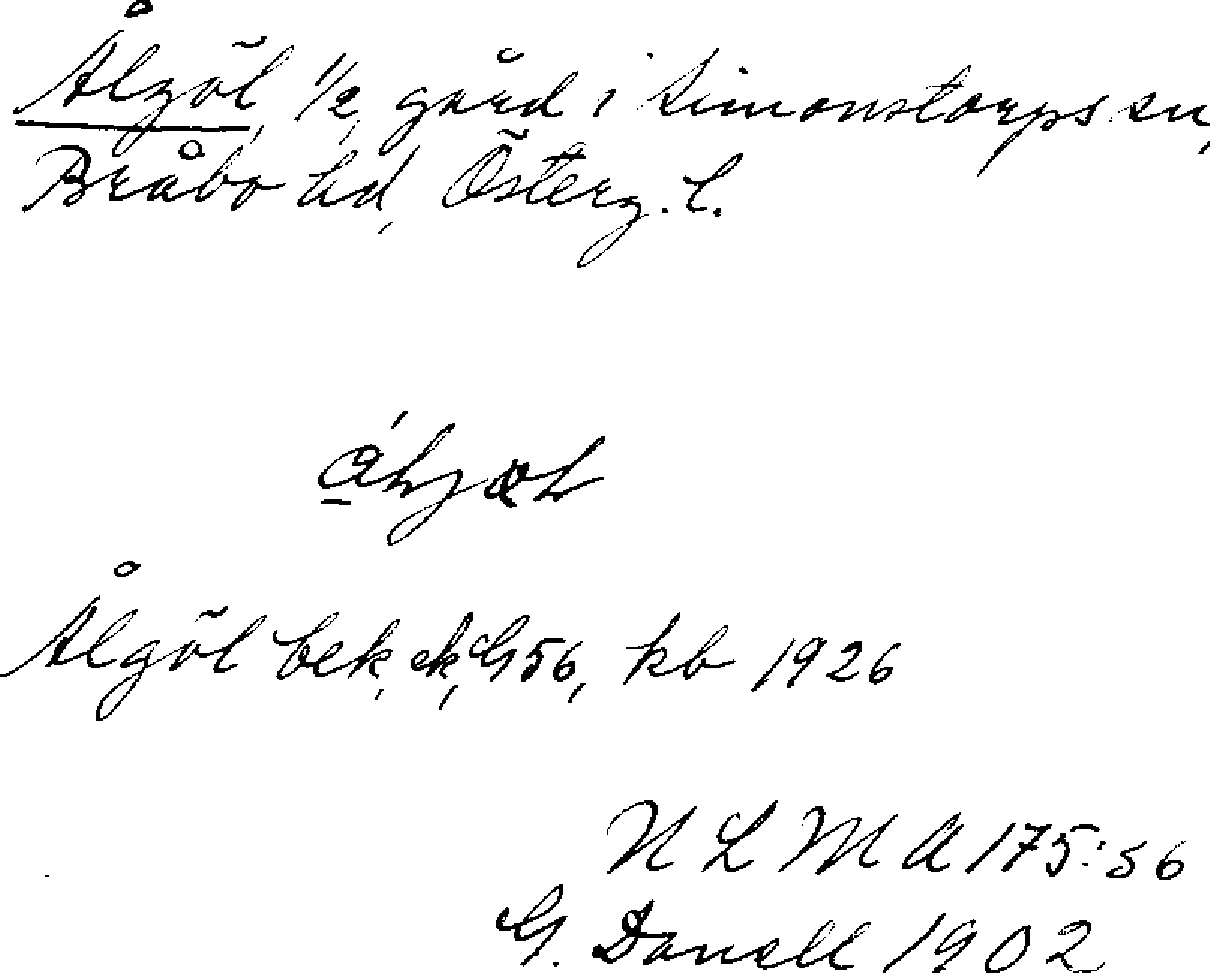 Ålgöl 1/2 gård i Simonstorps sn,
Bråbo hd, Österg. l.
Ålgöl bek, ek, G 56, kb 1926
N L M A 175:56
G. Danell 1902